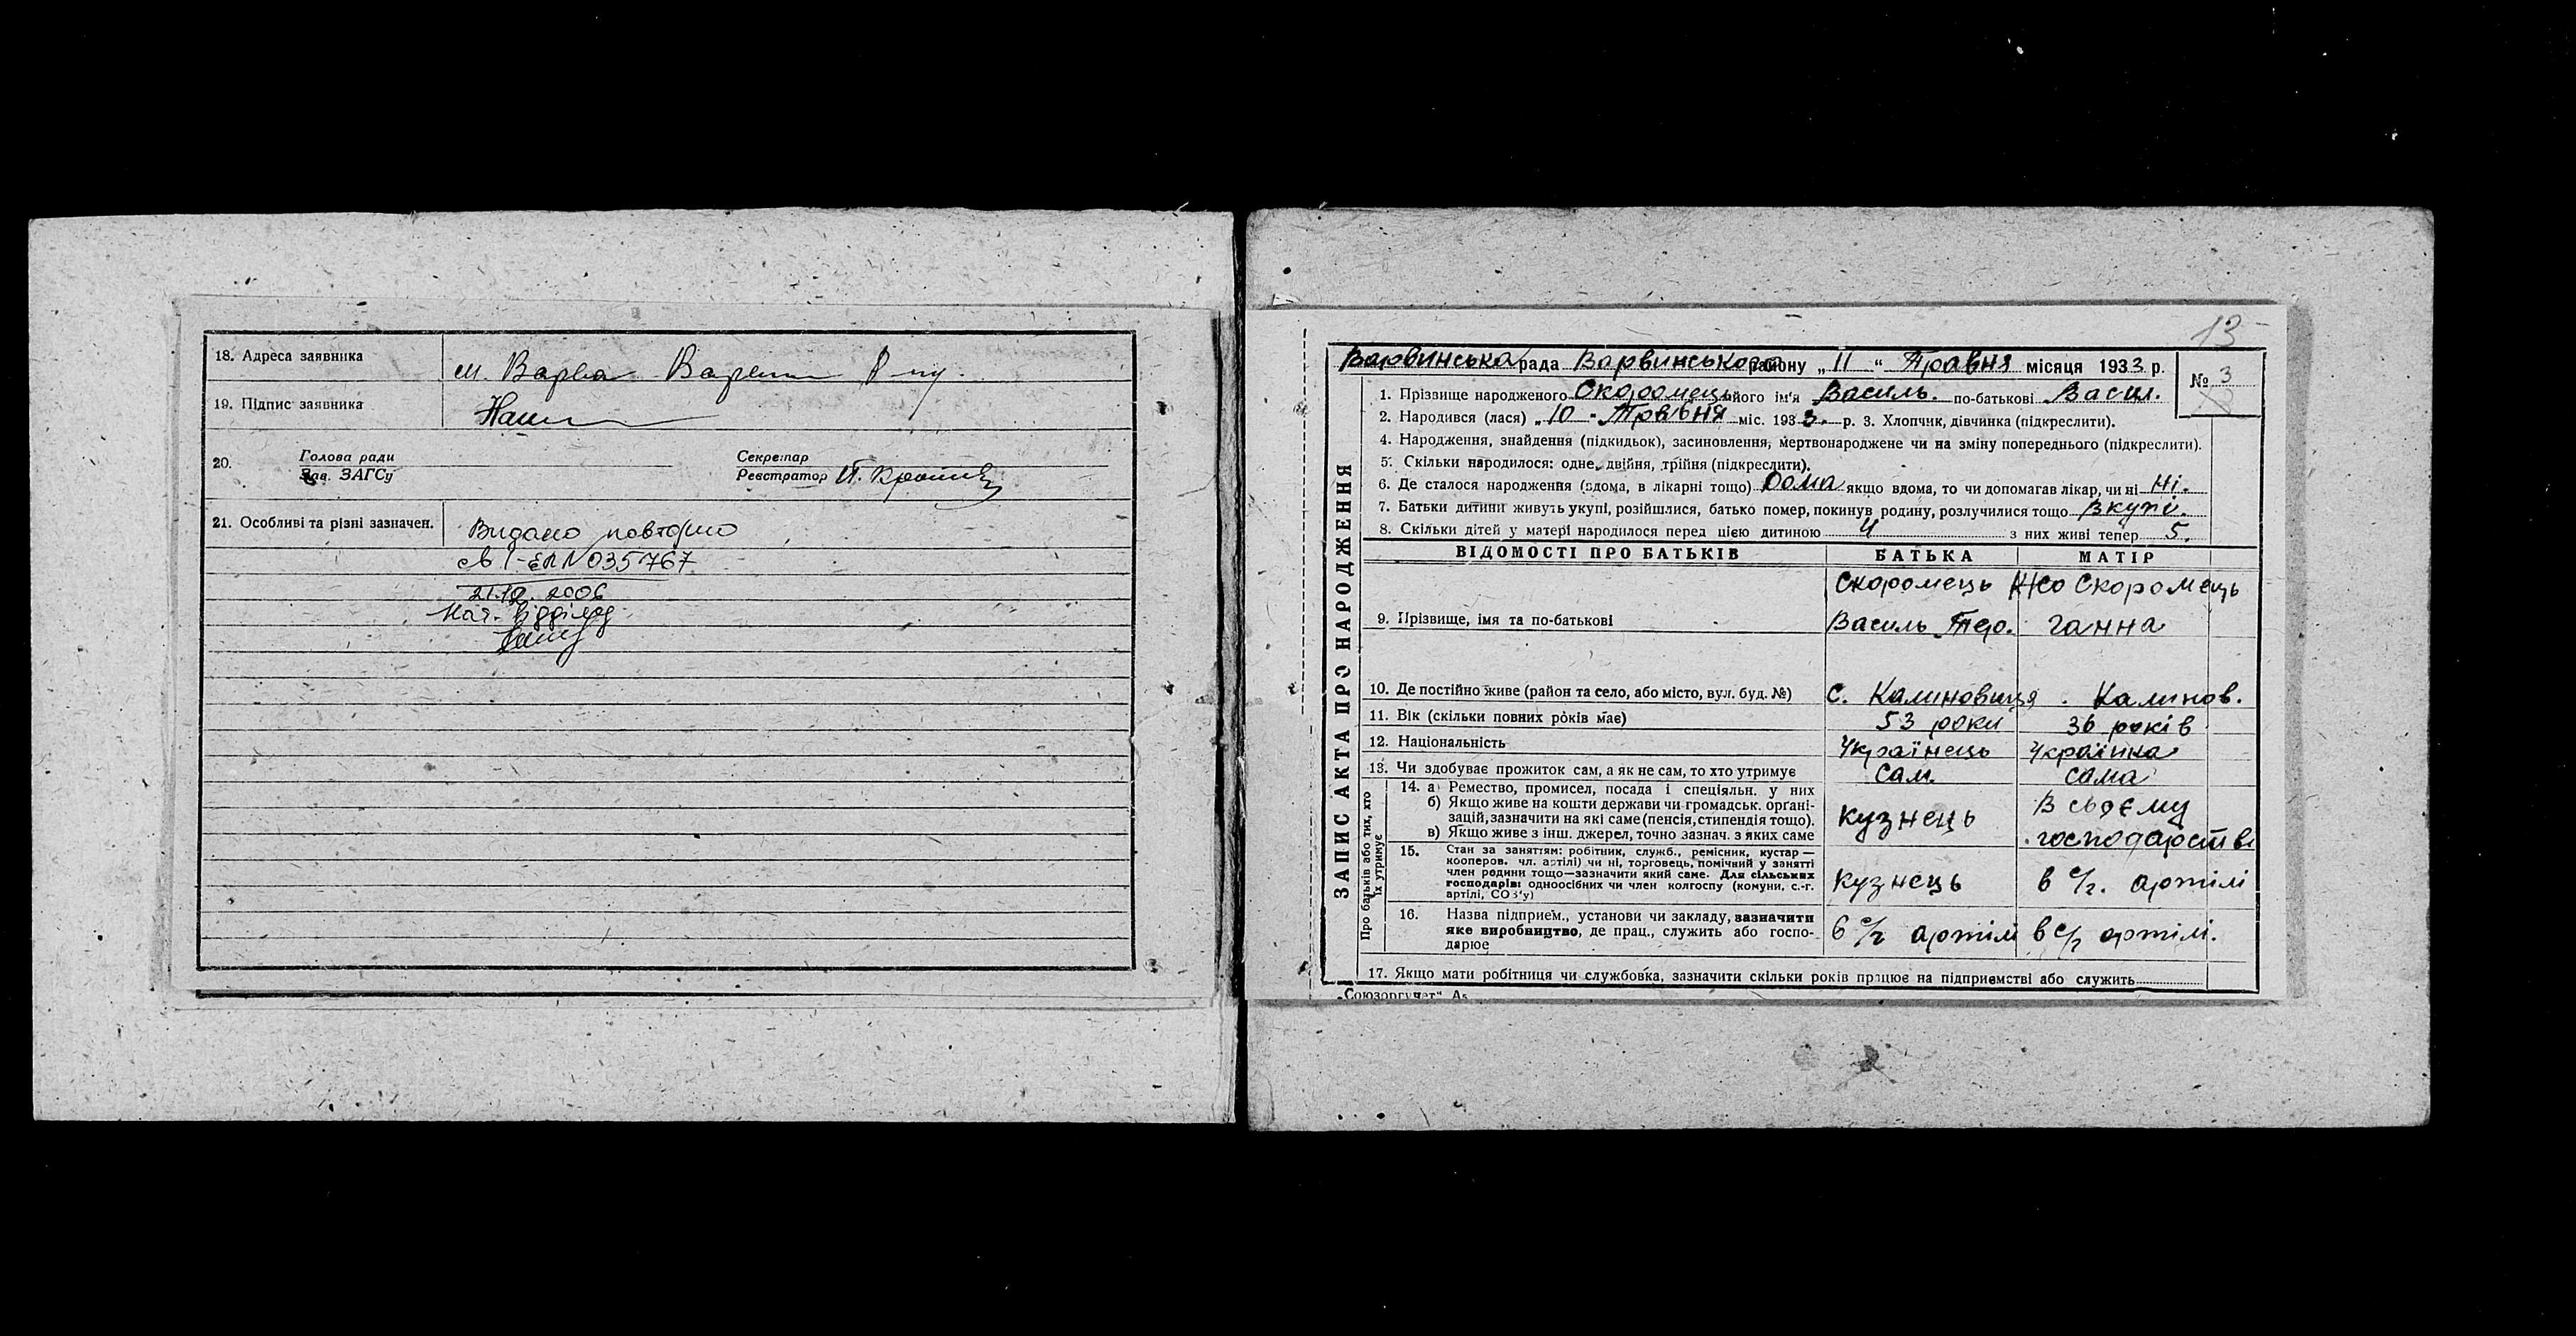 18. Адреса заявника м. Варва Варвин Р-ну.
19. Підпис заявника
20. Голова ради Секретар
Зав. ЗАГСу Реєстратор
21. Особливі та різні зазначен. Видано повторно
св I-ЕЛ N 035767
21.12.2006
Нач. відділу
13
Варвинська рада Варвинського району „ 11 “ Травня місяця 1933 р.
№ 3
1. Прізвище народженого Скоромець його ім'я Василь. по-батькові Васил.
2. Народився (лася) „ 10 " Травня міс. 1933. р. 3. Хлопчик, дівчинка (підкреслити).
4. Народження, знайдення (підкидьок), засиновлення, мертвонароджене чи на зміну попереднього (підкреслити).
5. Скільки народилося: одне, двійня, трійня (підкреслити).
6. Де сталося народження (вдома, в лікарні тощо) Дома якщо вдома, то чи допомагав лікар, чи ні Ні.
7. Батьки дитини живуть укупі, розійшлися, батько помер, покинув родину, розлучилися тощо Вкупі.
8. Скільки дітей у матері народилося перед цією дитиною 4 з них живі тепер 5.
ЗАПИС АКТА ПРО НАРОДЖЕННЯ
ВІДОМОСТІ ПРО БАТЬКІВ БАТЬКА МАТІР
Скоромець Скоромець
9. Прізвище, імя та по-батькові Василь Ганна
10. Де постійно живе (район та село, або місто, вул. буд. №) С. Калиновиця Калинов.
11. Вік (скільки повних років має) 53 роки 36 років
12. Національність Українець Українка
13. Чи здобуває прожиток сам, а як не сам, то хто утримує Сам. сама
Про батьків або тих, хто їх утримує
14. а) Ремество, промисел, посада і спеціяльн. у них
б) Якщо живе на кошти держави чи громадськ. органі-
зацій, зазначити на які саме (пенсія, стипендія тощо).
в) Якщо живе з інш. джерел, точно зазнач. з яких саме
кузнець
В своєму
господарстві
15. Стан за заняттям: робітник, служб., ремісник, кустар —
кооперов. чл. артілі) чи ні, торговець, помічний у занятті
член родини тощо—зазначити який саме. Для сільських
господарів: одноосібних чи член колгоспу (комуни, с.-г.
артілі, СОЗ'у)
кузнець в с/г. артілі
16. Назва підприєм., установи чи закладу, зазначити
яке виробництво, де прац., служить або госпо-
дарює
в с/г артілі в с/г артілі.
17. Якщо мати робітниця чи службовка, зазначити скільки років працює на підприємстві або служить
„Союзоргучет“